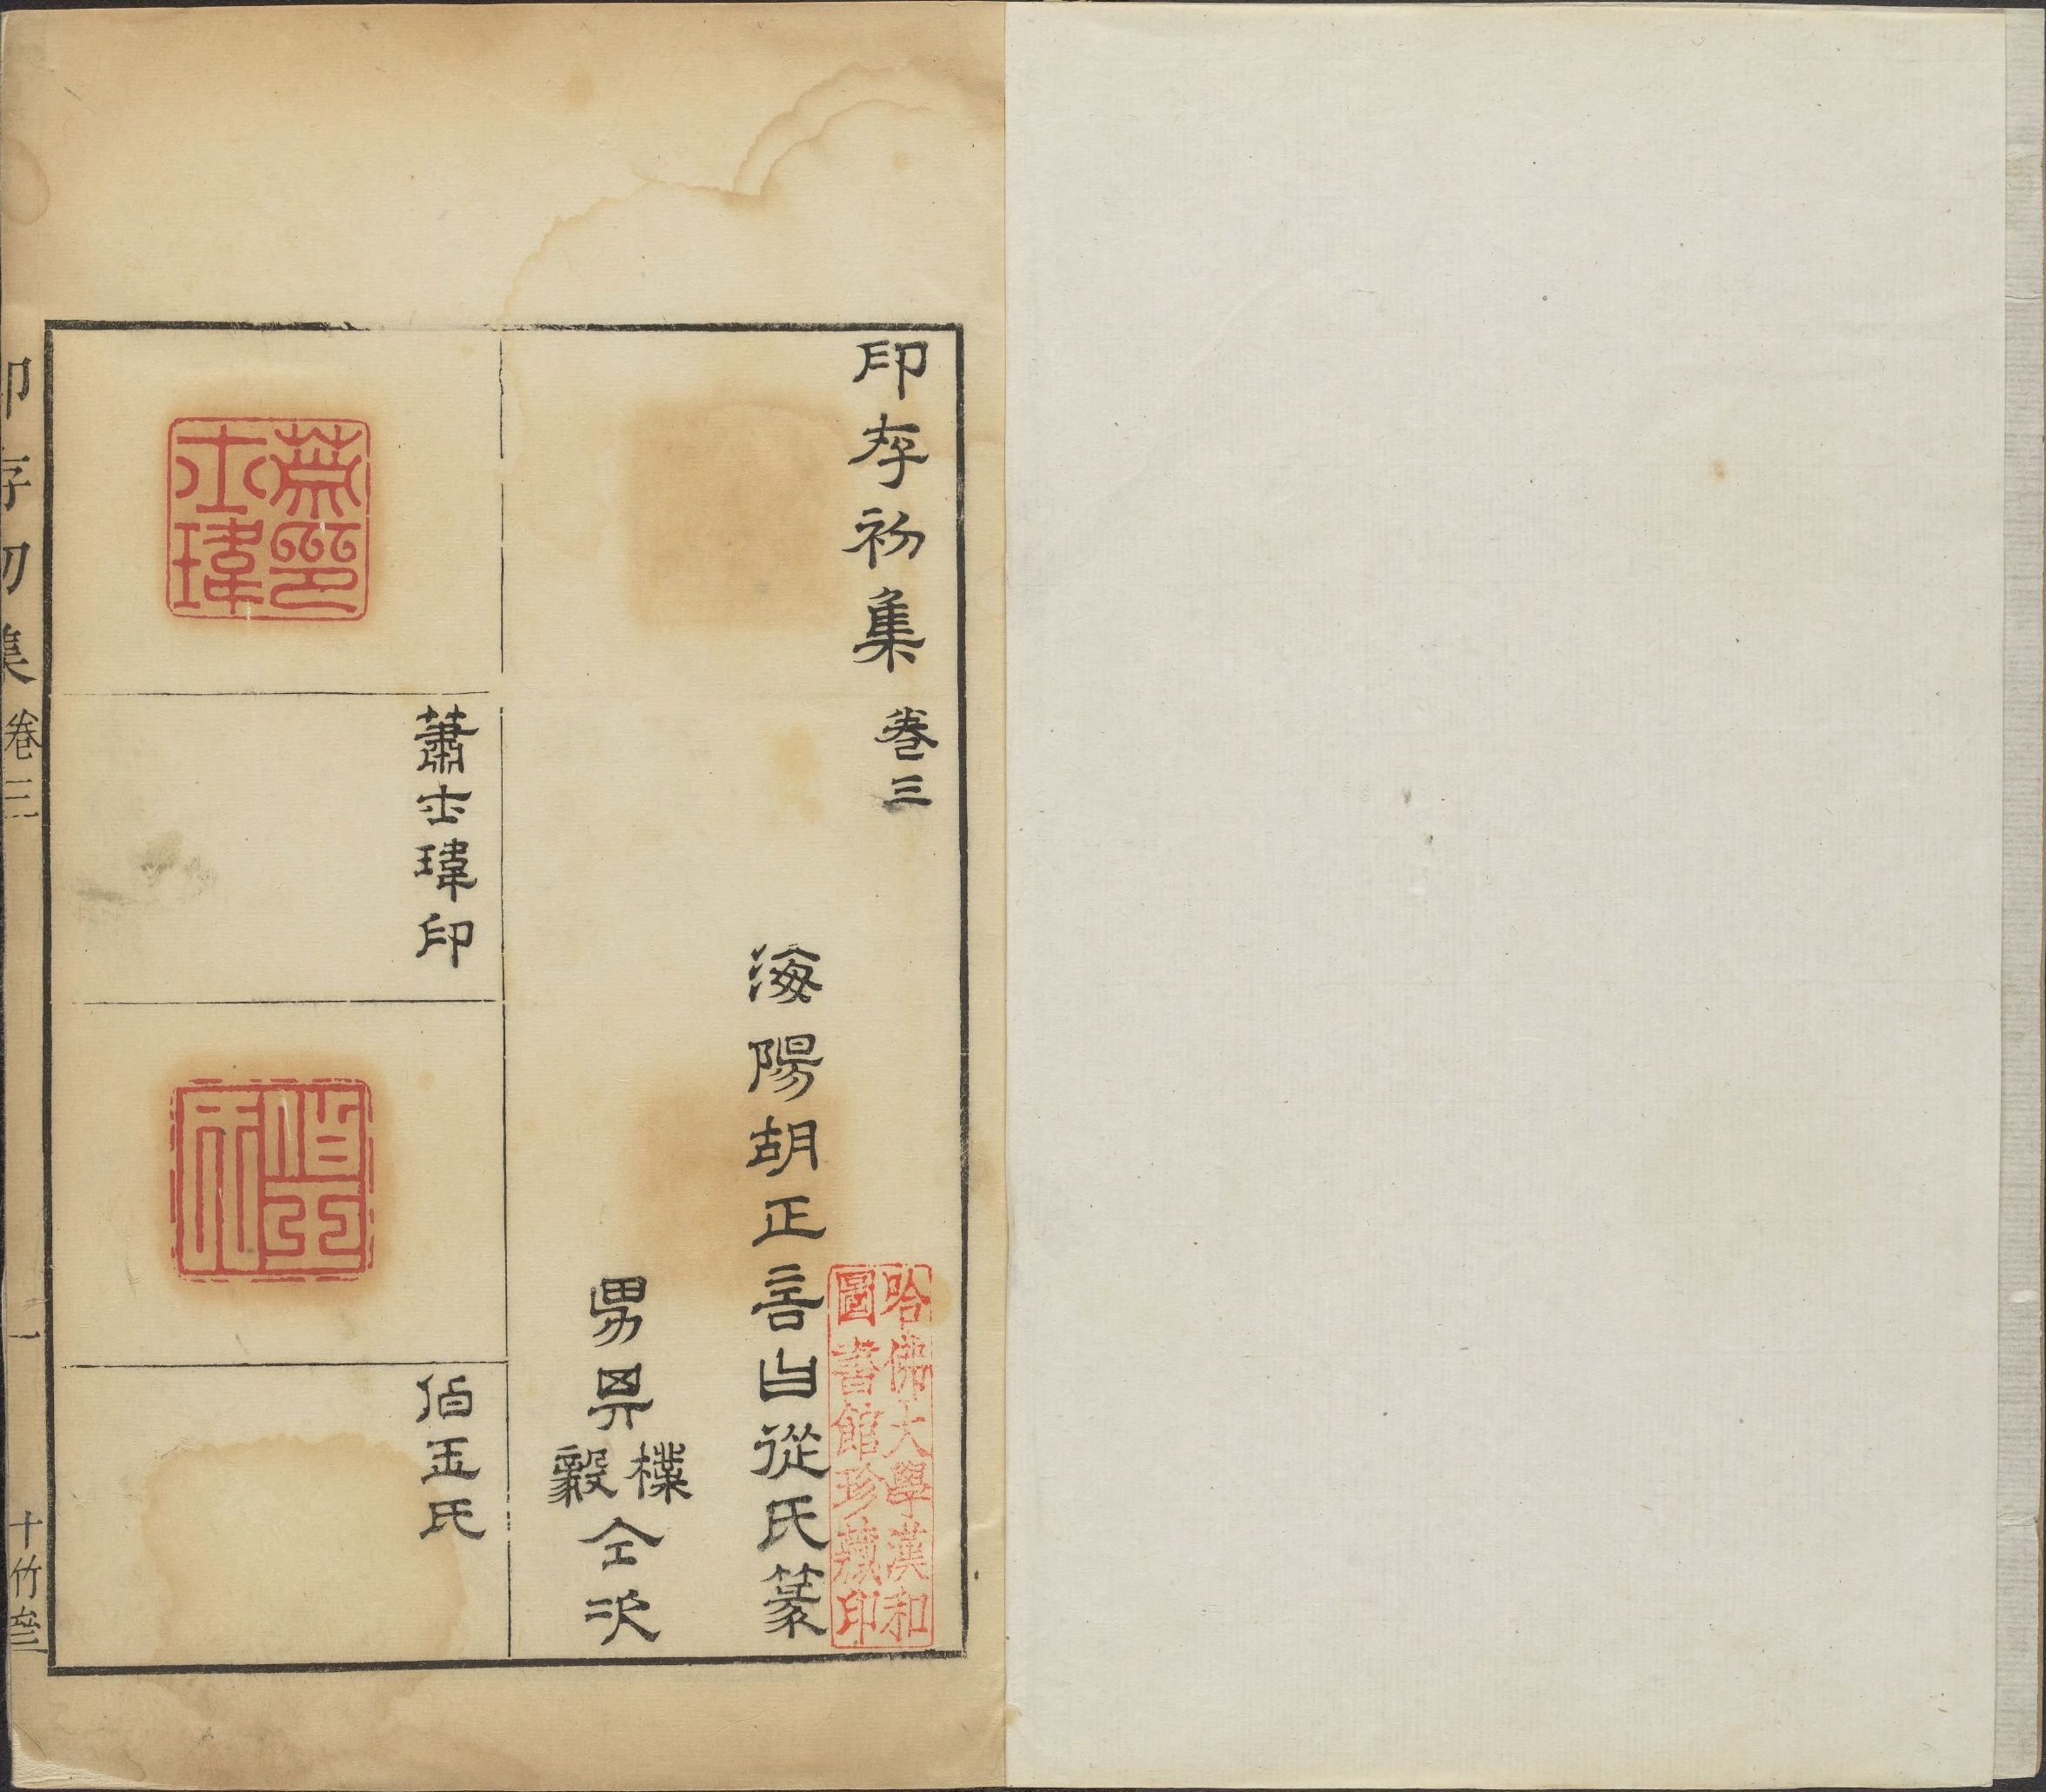 印存初集 卷三
海陽胡正言曰從氏篆
男其樸毅仝次
哈佛大學漢和
圖書館珍藏印
蕭印士瑋
蕭士瑋印
伯玉氏
伯玉氏
印存初集 卷三 一 十竹齋